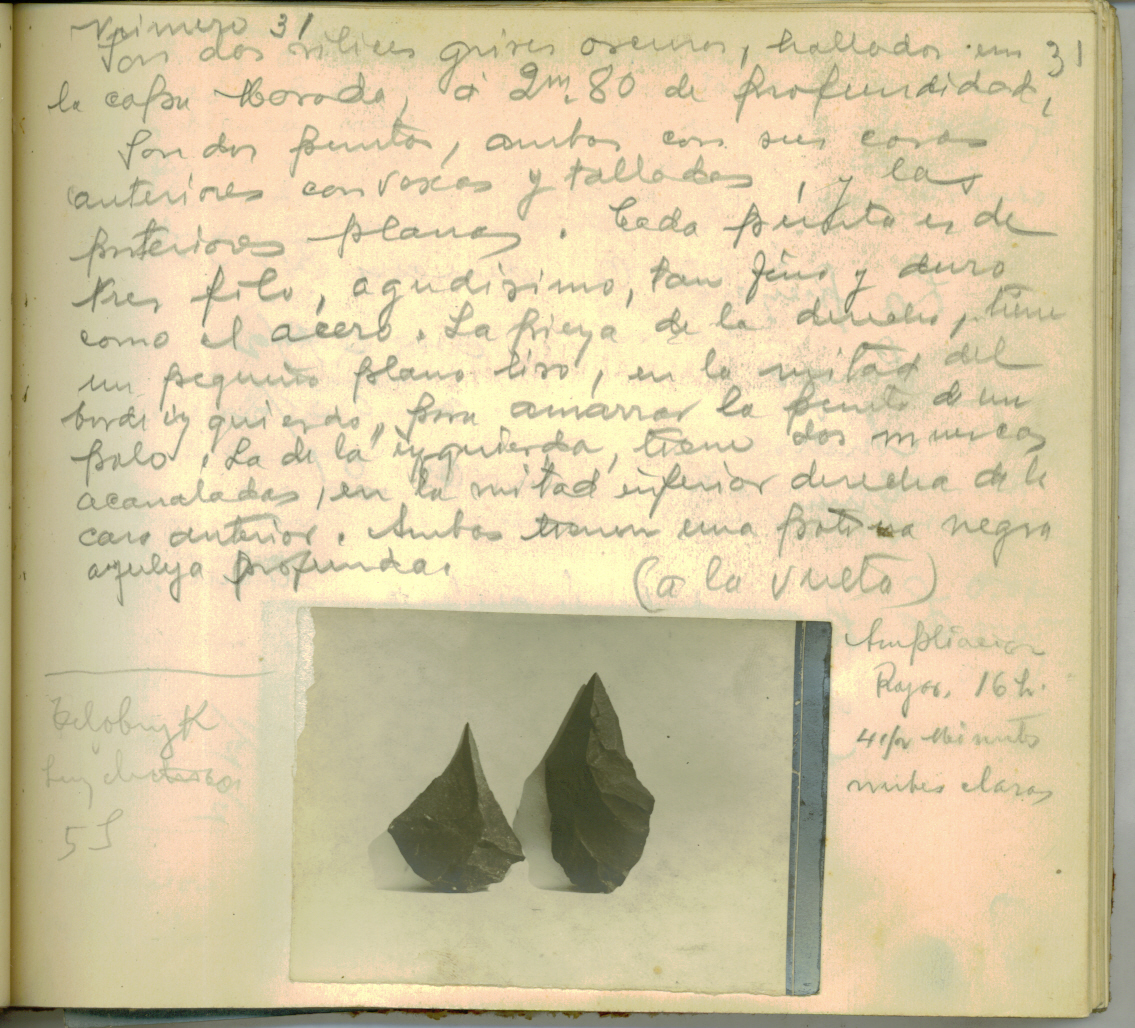 Número 31
31
Son dos silices grises oscuros, hallados en
la capa Morada, á 2m,80 de profundidad,
Son dos puntas, ambas con sus caras
anteriores convexas y talladas, y las
posteriores planas. Cada punta es de
tres filo, agudisimo, tan fino y duro
como el acero. La pieza de la derecha, tiene
un pequeño plano liso, en la mitad del
borde izquierdo, para amarrar la punta de un
palo. La de la izquierda, tiene dos muescas
acanaladas, en la mitad inferior derecha de la
cara anterior. Ambas tienen una patina negra
azulada profunda.
(a la vuelta)
Ampliacion
Rajar. 16 h.
4 minuto
nubes claras
Luz
5S